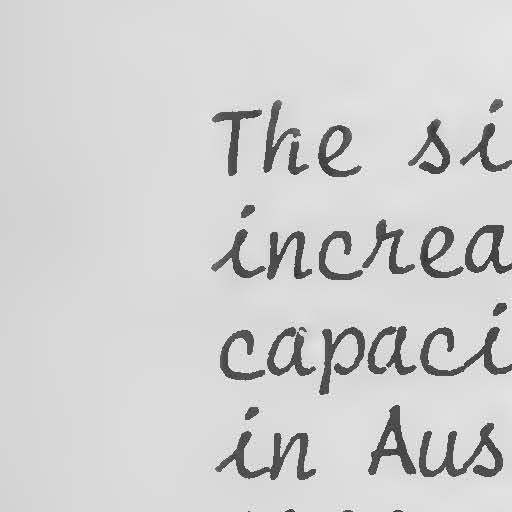 The si
increa
capaci
in Aus